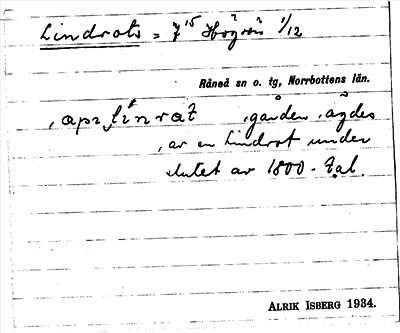 Lindrots = 7¹⁵ Högsön 1/12
Råneå sn o. tg, Norrbottens län.
gården ägdes
av en Lindrot under
slutet av 1800-tal.
ALRIK ISBERG 1934.